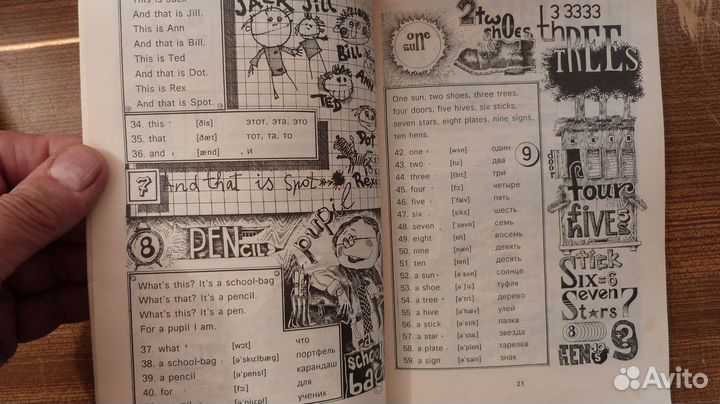 This is Jack
And that is Jill.
This is Ann
And that is Bill.
This is Ted
And that is Dot.
This is Rex
And that is Spot.
JACK JILL
BILL
ANN
TED
DOT
REX
34. this [ðis] этот, эта, это
35. that [ðæt] тот, та, то
36. and [ænd] и
7 And that is Spot
8 PENCIL
pupil
What's this? It's a school-bag
What's that? It's a pencil.
What's this? It's a pen.
For a pupil I am.
37. what [wɔt] что
38. a school-bag [ə'sku:lbæg] портфель
39. a pencil [ə'pensl] карандаш
40. for [fɔ:] для
[ə'pju:pl] ученик
a school bag
one sun
2 two shoes
1 3 3333
three
TREES
One sun, two shoes, three trees,
four doors, five hives, six sticks,
seven stars, eight plates, nine signs,
ten hens.
9
42. one [wʌn] один
43. two [tu:] два
44. three [θri:] три
45. four [fɔ:] четыре
46. five [faiv] пять
47. six [siks] шесть
48. seven ['sevn] семь
49. eight [eit] восемь
50. nine [nain] девять
51. ten [ten] десять
52. a sun [ə'sʌn] солнце
53. a shoe [ə'ʃu:] туфля
54. a tree [ə'tri:] дерево
55. a hive [ə'haiv] улей
56. a stick [ə'stik] палка
57. a star [ə'sta:] звезда
58. a plate [ə'pleit] тарелка
59. a sign [ə'sain] знак
door
four
FIVE
STICK
SIX=6
Seven 7
Stars
8
HEN
21
Avito